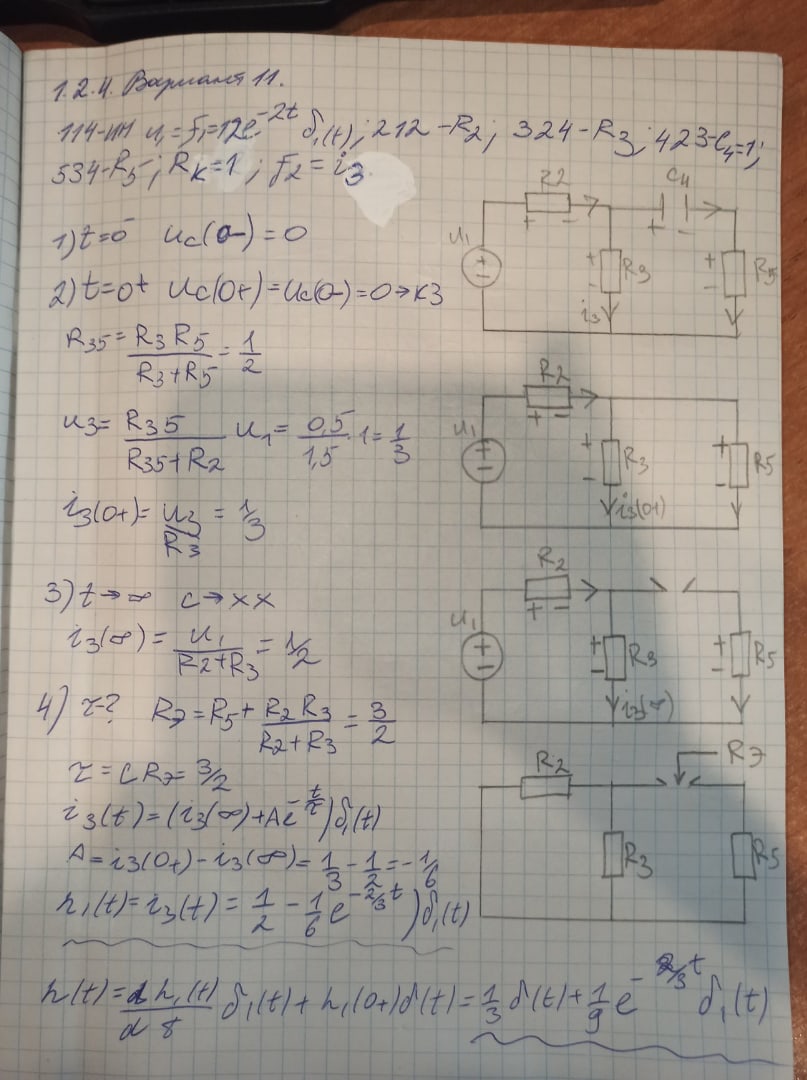 1.2.4. Вариант 11.
114-ИН u₁=F₁=12e^(-2t) δ₁(t); 212-R₂; 324-R₃; 423-C₄=1;
534-R₅; Rк=1; F₂=i₃
1) t=0⁻ uc(0-)=0
2) t=0⁺ Uc(0+)=Uc(0-)=0→КЗ
R₃₅ = R₃R₅/(R₃+R₅) = 1/2
u₃ = R₃₅/(R₃₅+R₂) u₁ = 0,5/1,5 · 1 = 1/3
i₃(0+) = u₃/R₃ = 1/3
3) t→∞ C→XX
i₃(∞) = u₁/(R₂+R₃) = 1/2
4) τ-? Rэ = R₅ + R₂R₃/(R₂+R₃) = 3/2
τ = CRэ = 3/2
i₃(t) = (i₃(∞)+Ae^(-t/τ))δ₁(t)
A = i₃(0+) - i₃(∞) = 1/3 - 1/2 = -1/6
h₁(t) = i₃(t) = 1/2 - 1/6 e^(-2/3 t))δ₁(t)
h(t) = dh₁(t)/dt δ₁(t) + h₁(0+)δ(t) = 1/3 δ(t) + 1/9 e^(-2/3 t) δ₁(t)
R2 C4
u₁ + -
+ - + R3 + R5
- -
i₃
R2
u₁ + -
+ - + R3 + R5
- -
i₃(0+)
R2
u₁ + -
+ - + R3 + R5
- -
i₃(∞)
R2 Rэ
R3 R5